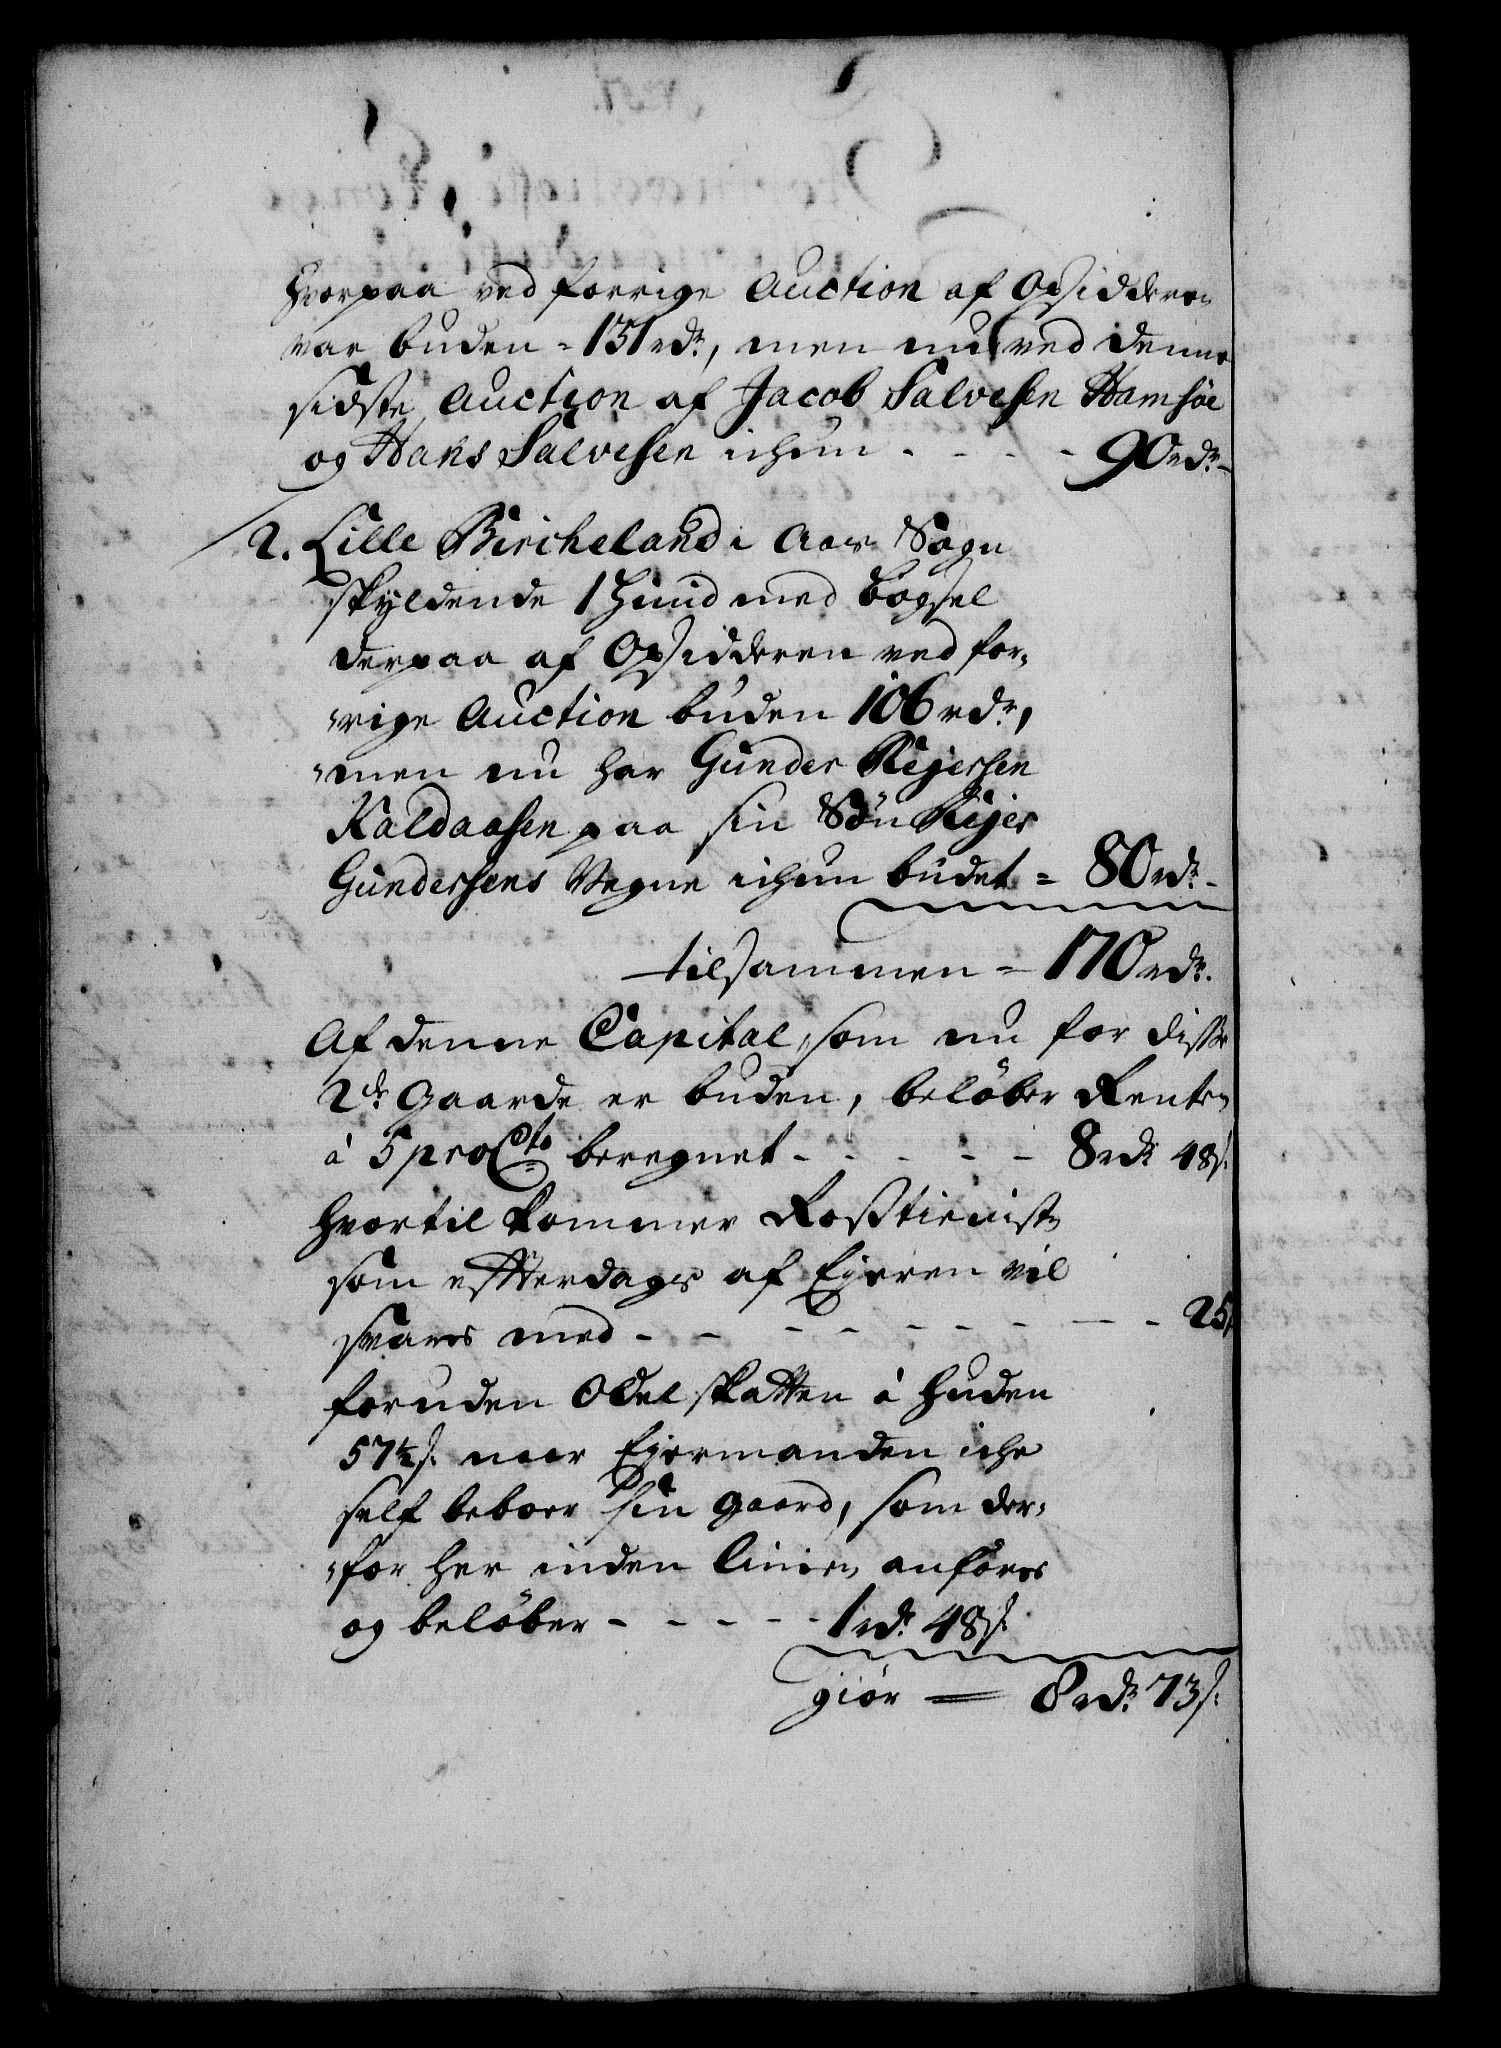 hvorpaa ved forrige Auction af Opsidderen
var buden = 131 rdr, men nu ved denne
sidste Auction af Jacob Salvesen Hamsöe
og Hans Salvesen ichun - - - - 90 rdr -
2. Lille Bircheland i Aas Sogn
skyldende 1 Huud med bøgsel
derpaa af Opsidderen ved for-
rige Auction buden 106 rdr,
men nu har Gunder Rejersen
Kaldaasen paa sin Søn Rejer
Gundersens Vegne ichun budet = 80 rdr -
tilsammen = 170 rdr.
Af denne Capital, som nu for disse
2de Gaarde er buden, beløber Renten
à 5 pro Cto beregnet - - - - - 8 rdr 48 s.
hvortil kommer Rosstienisten
som effterdags af Ejeren vil
svares med - - - - - - - - - 25 s
foruden Odelskatten à Huden
57½ s. naar Ejermanden iche
self beboer sin gaard, som der-
for her inden linien anføres
og beløber - - - - - 1 rdr 48 s.
giör = 8 rdr 73 s.